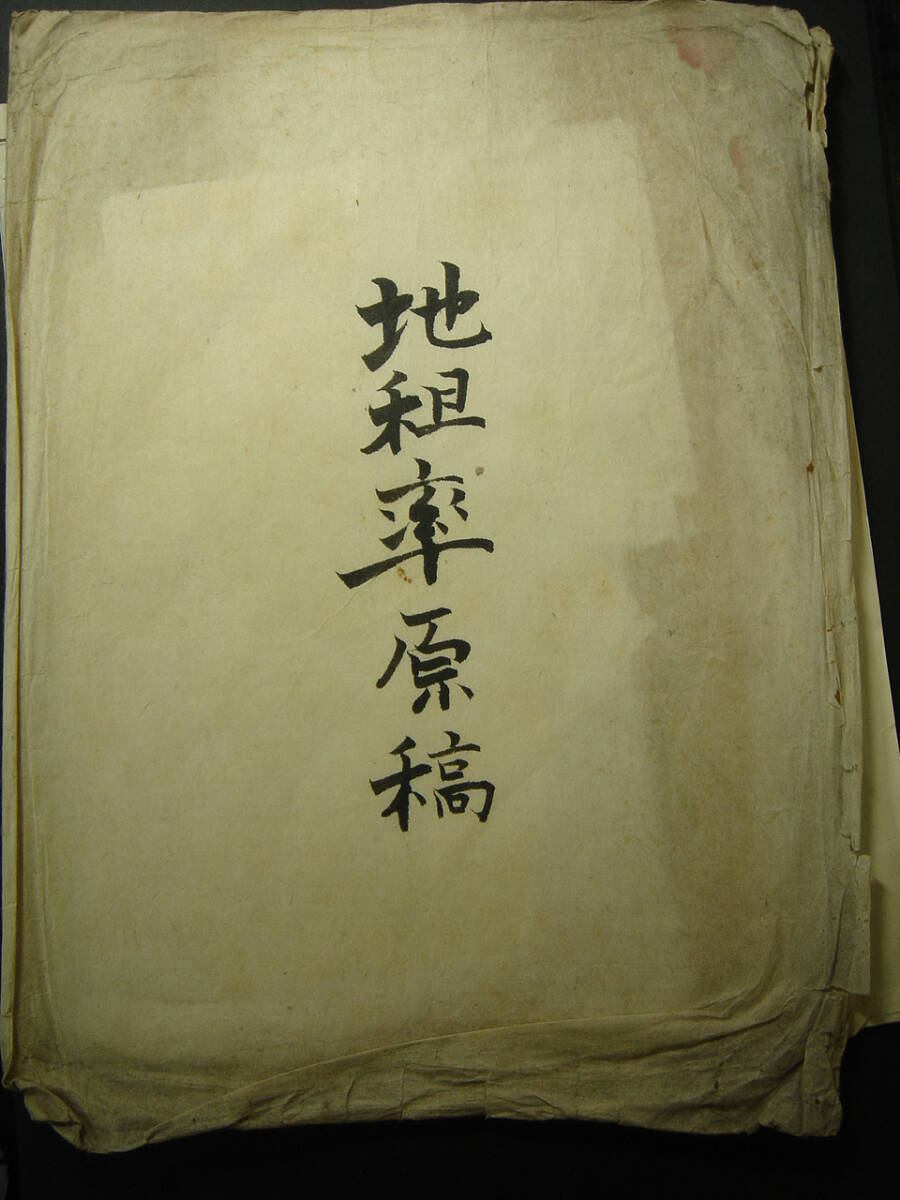 地租率原稿